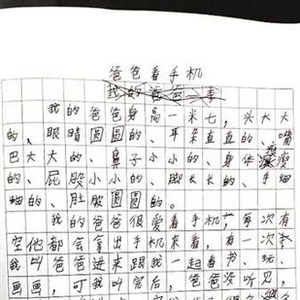 爸爸看手机
我的爸爸身高一米七，头大大
的、眼睛圆圆的、耳朵直直的、嘴
巴大大的、鼻子小小的、身体瘦瘦
的、屁股小小的、脚长长的、手细
细的、肚皮圆圆的。
我的爸爸很爱看手机，每次有
空他都会拿出手机来看，有一次
我叫爸爸进来跟我一起看书、玩、
画画，可我叫完后，爸爸没听见